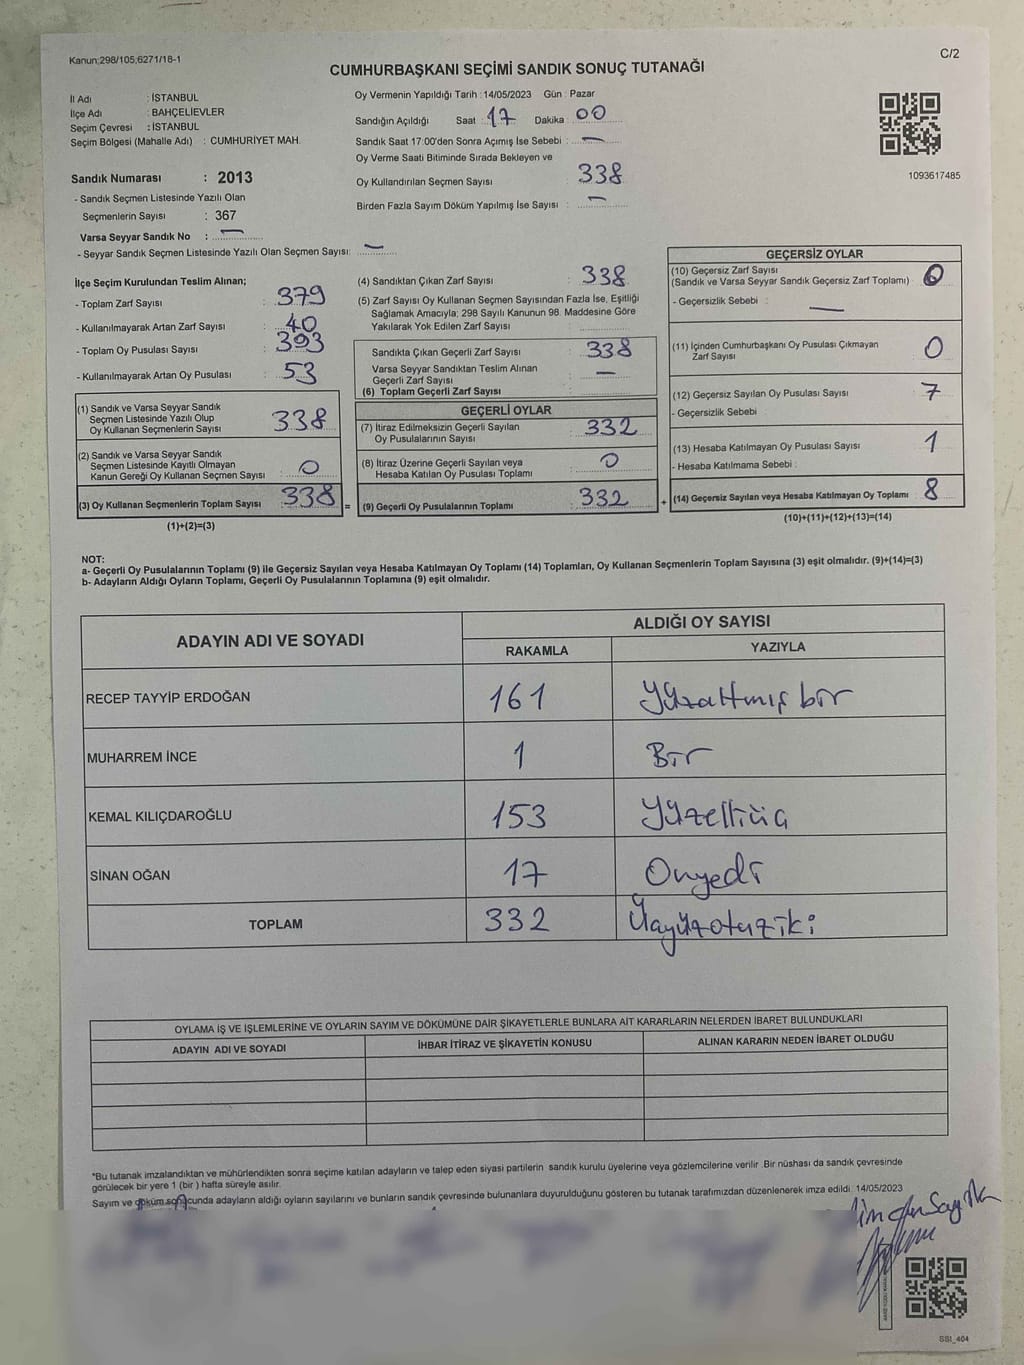 Kanun;298/105;6271/18-1
C/2
CUMHURBAŞKANI SEÇİMİ SANDIK SONUÇ TUTANAĞI
İl Adı : İSTANBUL
İlçe Adı : BAHÇELİEVLER
Seçim Çevresi : İSTANBUL
Seçim Bölgesi (Mahalle Adı) : CUMHURİYET MAH.
Sandık Numarası : 2013
- Sandık Seçmen Listesinde Yazılı Olan
Seçmenlerin Sayısı : 367
Varsa Seyyar Sandık No : —
- Seyyar Sandık Seçmen Listesinde Yazılı Olan Seçmen Sayısı: —
Oy Vermenin Yapıldığı Tarih :14/05/2023 Gün : Pazar
Sandığın Açıldığı Saat : 17 Dakika : 00
Sandık Saat 17:00'den Sonra Açımış İse Sebebi : —
Oy Verme Saati Bitiminde Sırada Bekleyen ve
Oy Kullandırılan Seçmen Sayısı : 338
Birden Fazla Sayım Döküm Yapılmış İse Sayısı : —
1093617485
İlçe Seçim Kurulundan Teslim Alınan;
- Toplam Zarf Sayısı : 379
- Kullanılmayarak Artan Zarf Sayısı : 40
- Toplam Oy Pusulası Sayısı : 393
- Kullanılmayarak Artan Oy Pusulası : 53
(1) Sandık ve Varsa Seyyar Sandık
Seçmen Listesinde Yazılı Olup
Oy Kullanan Seçmenlerin Sayısı : 338
(2) Sandık ve Varsa Seyyar Sandık
Seçmen Listesinde Kayıtlı Olmayan
Kanun Gereği Oy Kullanan Seçmen Sayısı : 0
(3) Oy Kullanan Seçmenlerin Toplam Sayısı : 338
(1)+(2)=(3)
(4) Sandıktan Çıkan Zarf Sayısı : 338
(5) Zarf Sayısı Oy Kullanan Seçmen Sayısından Fazla İse, Eşitliği
Sağlamak Amacıyla; 298 Sayılı Kanunun 98. Maddesine Göre
Yakılarak Yok Edilen Zarf Sayısı :
Sandıkta Çıkan Geçerli Zarf Sayısı : 338
Varsa Seyyar Sandıktan Teslim Alınan
Geçerli Zarf Sayısı : —
(6) Toplam Geçerli Zarf Sayısı :
GEÇERLİ OYLAR
(7) İtiraz Edilmeksizin Geçerli Sayılan
Oy Pusulalarının Sayısı : 332
(8) İtiraz Üzerine Geçerli Sayılan veya
Hesaba Katılan Oy Pusulası Toplamı : 0
= (9) Geçerli Oy Pusulalarının Toplamı : 332
GEÇERSİZ OYLAR
(10) Geçersiz Zarf Sayısı
(Sandık ve Varsa Seyyar Sandık Geçersiz Zarf Toplamı) : 0
- Geçersizlik Sebebi : —
(11) İçinden Cumhurbaşkanı Oy Pusulası Çıkmayan
Zarf Sayısı : 0
(12) Geçersiz Sayılan Oy Pusulası Sayısı : 7
- Geçersizlik Sebebi
(13) Hesaba Katılmayan Oy Pusulası Sayısı : 1
- Hesaba Katılmama Sebebi :
+ (14) Geçersiz Sayılan veya Hesaba Katılmayan Oy Toplamı : 8
(10)+(11)+(12)+(13)=(14)
NOT:
a- Geçerli Oy Pusulalarının Toplamı (9) ile Geçersiz Sayılan veya Hesaba Katılmayan Oy Toplamı (14) Toplamları, Oy Kullanan Seçmenlerin Toplam Sayısına (3) eşit olmalıdır. (9)+(14)=(3)
b- Adayların Aldığı Oyların Toplamı, Geçerli Oy Pusulalarının Toplamına (9) eşit olmalıdır.
ADAYIN ADI VE SOYADI
ALDIĞI OY SAYISI
RAKAMLA YAZIYLA
RECEP TAYYİP ERDOĞAN 161 Yüzaltmış bir
MUHARREM İNCE 1 Bir
KEMAL KILIÇDAROĞLU 153 Yüzelliüç
SİNAN OĞAN 17 Onyedi
TOPLAM 332 Üçyüzotuziki
OYLAMA İŞ VE İŞLEMLERİNE VE OYLARIN SAYIM VE DÖKÜMÜNE DAİR ŞİKAYETLERLE BUNLARA AİT KARARLARIN NELERDEN İBARET BULUNDUKLARI
ADAYIN ADI VE SOYADI İHBAR İTİRAZ VE ŞİKAYETİN KONUSU ALINAN KARARIN NEDEN İBARET OLDUĞU
*Bu tutanak imzalandıktan ve mühürlendikten sonra seçime katılan adayların ve talep eden siyasi partilerin sandık kurulu üyelerine veya gözlemcilerine verilir .Bir nüshası da sandık çevresinde
görülecek bir yere 1 (bir ) hafta süreyle asılır.
Sayım ve döküm sonucunda adayların aldığı oyların sayılarını ve bunların sandık çevresinde bulunanlara duyurulduğunu gösteren bu tutanak tarafımızdan düzenlenerek imza edildi. 14/05/2023
SSI_404